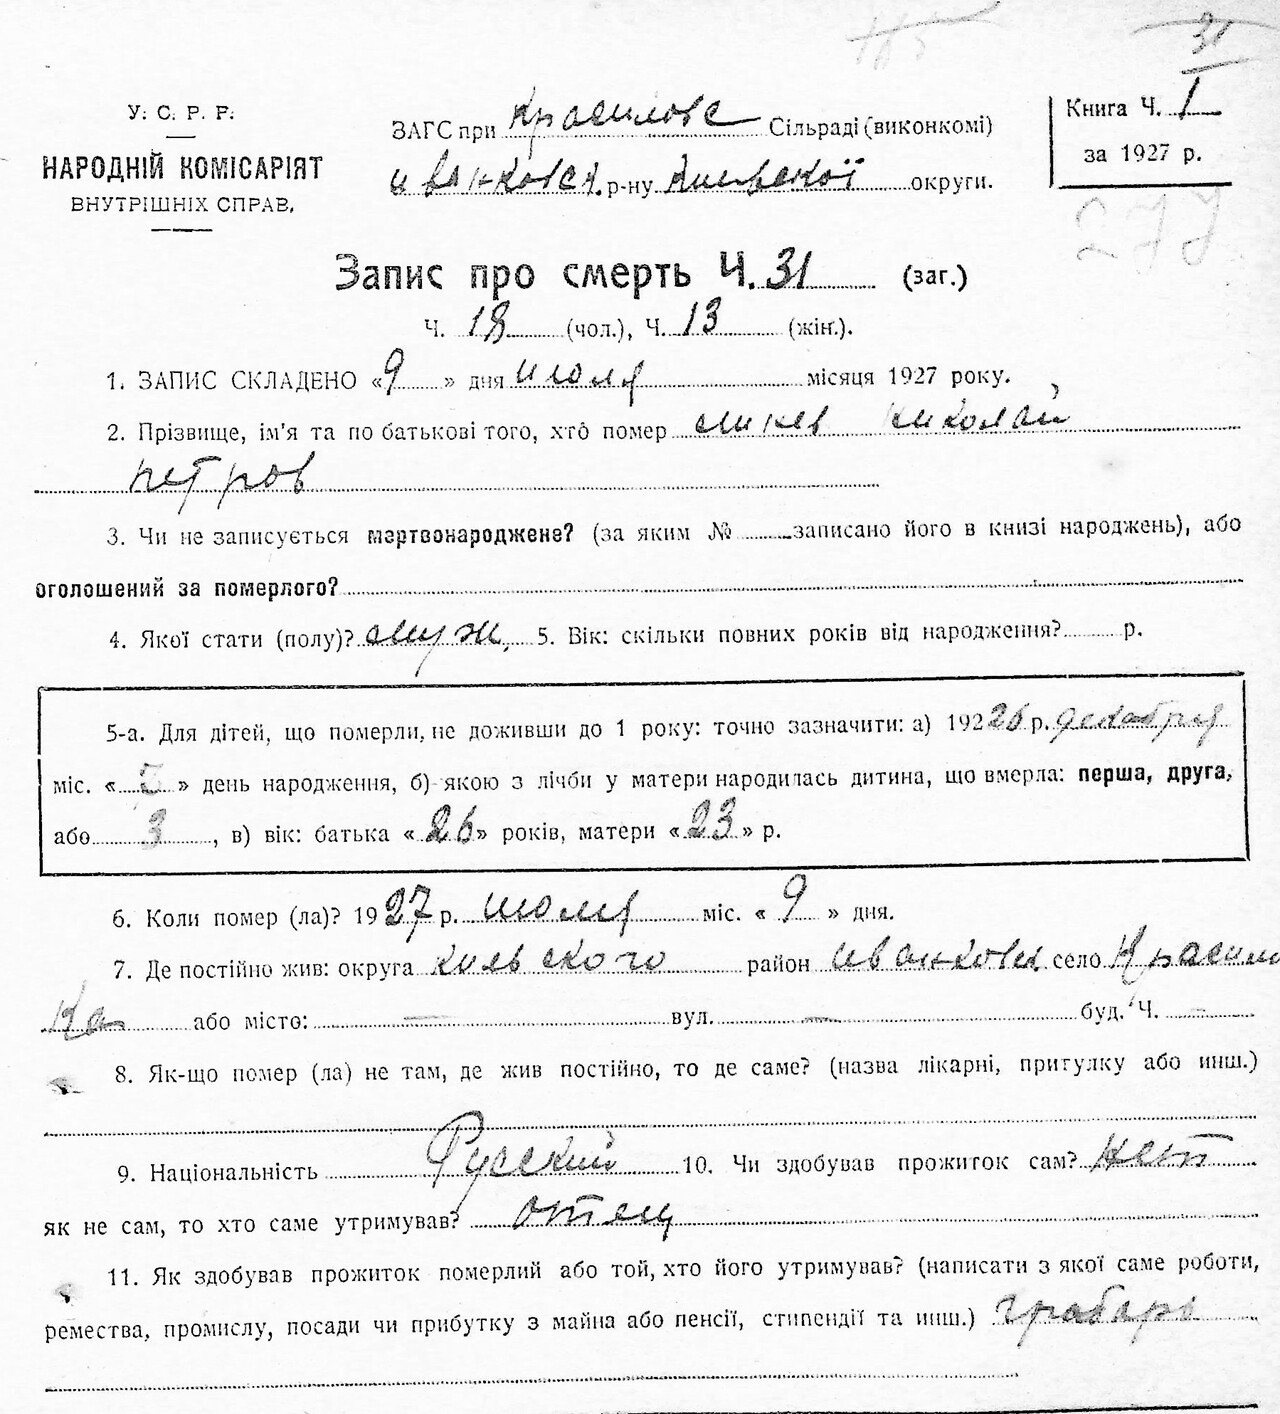 31
У. С. Р. Р.
НАРОДНІЙ КОМІСАРІЯТ
ВНУТРІШНІХ СПРАВ.
ЗАГС при Красиловс Сільраді (виконкомі)
Иванковск. р-ну Киевской округи.
Книга Ч. I
за 1927 р.
277
Запис про смерть Ч. 31 (заг.)
Ч. 18 (чол.), Ч. 13 (жін.).
1. ЗАПИС СКЛАДЕНО «9» дня июля місяця 1927 року.
2. Прізвище, ім'я та по батькові того, хто помер Николай
Петров
3. Чи не записується мертвонароджене? (за яким № записано його в книзі народжень), або
оголошений за померлого?
4. Якої стати (полу)? муж. 5. Вік: скільки повних років від народження? р.
5-а. Для дітей, що померли, не доживши до 1 року: точно зазначити: а) 19226 р. декабря
міс. «5» день народження, б) якою з лічби у матери народилась дитина, що вмерла: перша, друга,
або 3, в) вік: батька «26» років, матери «23» р.
6. Коли помер (ла)? 1927 р. июля міс. «9» дня.
7. Де постійно жив: округа Киевского район Иванковск село Красилов
ка або місто: — вул. — буд. Ч. —
8. Як-що помер (ла) не там, де жив постійно, то де саме? (назва лікарні, притулку або инш.)
9. Національність Русский 10. Чи здобував прожиток сам? нет
як не сам, то хто саме утримував? отец
11. Як здобував прожиток померлий або той, хто його утримував? (написати з якої саме роботи,
ремества, промислу, посади чи прибутку з майна або пенсії, стипендії та инш.) грабарь